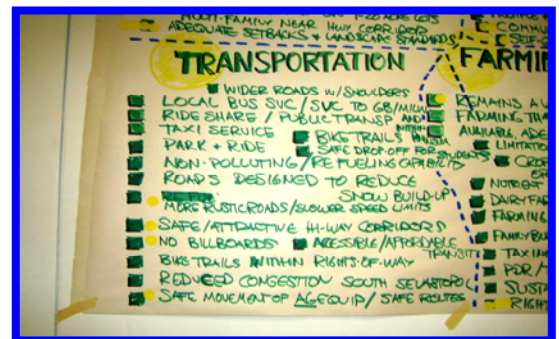 MULTI-FAMILY NEAR HWY CORRIDOR
ADEQUATE SETBACKS & LANDSCAPE STANDARDS
TRANSPORTATION
WIDER ROADS W/SHOULDERS
LOCAL BUS SVC / SVC TO GB/MILW
RIDE SHARE / PUBLIC TRANSP AND
TAXI SERVICE
BIKE TRAILS WITHIN
PARK + RIDE
SAFE DROP-OFF FOR STUDENTS
NON-POLLUTING/REFUELING CAPABILITY
ROADS DESIGNED TO REDUCE
SNOW BUILD-UP
MORE RUSTIC ROADS/SLOWER SPEED LIMITS
SAFE/ATTRACTIVE HI-WAY CORRIDORS
NO BILLBOARDS
ACESSIBLE/AFFORDABLE
TRANSIT
BIKE TRAILS WITHIN RIGHTS-OF-WAY
REDUCED CONGESTION SOUTH SEVASTOPOL
SAFE MOVEMENT OF AG EQUIP/ SAFE ROUTES
COMMU
FARMIN
REMAINS A V
FARMING TRA
AVAILABLE, ADE
LIMITATIO
CROP
NUTRIENT
DAIRY FAR
FARMING
FAMILY BU
TAXIN
PDR/
SUSTA
RIGHT